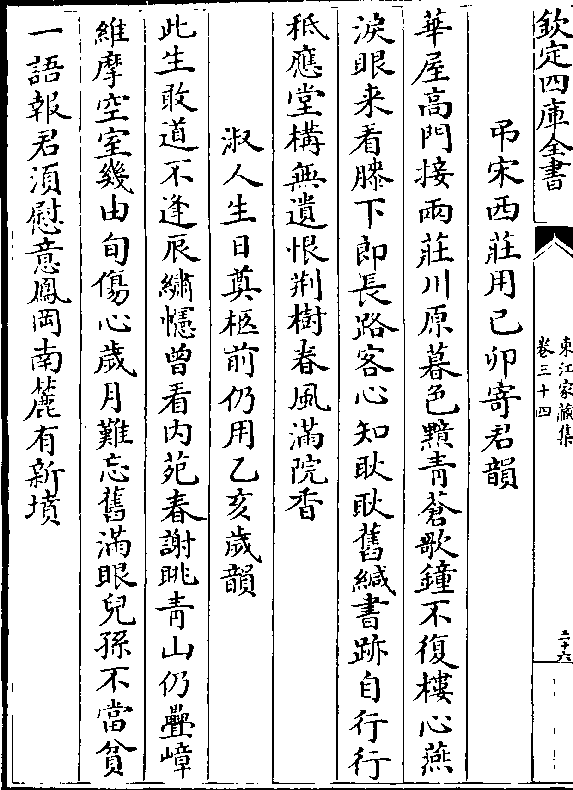 欽定四庫全書
東江家藏集
卷三十四
二十六
弔宋西莊用己卯寄君韻
華屋高門接兩莊川原暮色黯青蒼歌鐘不復樓心燕
淚眼来看膝下郎長路客心知耿耿舊緘書跡自行行
秪應堂構無遺恨荆樹春風滿院香
淑人生日奠柩前仍用乙亥歲韻
此生敢道不逢辰繡幰曾看内苑春謝眺青山仍疊嶂
維摩空室幾由旬傷心歲月難忘舊滿眼兒孫不當貧
一語報君須慰意鳳岡南麓有新墳